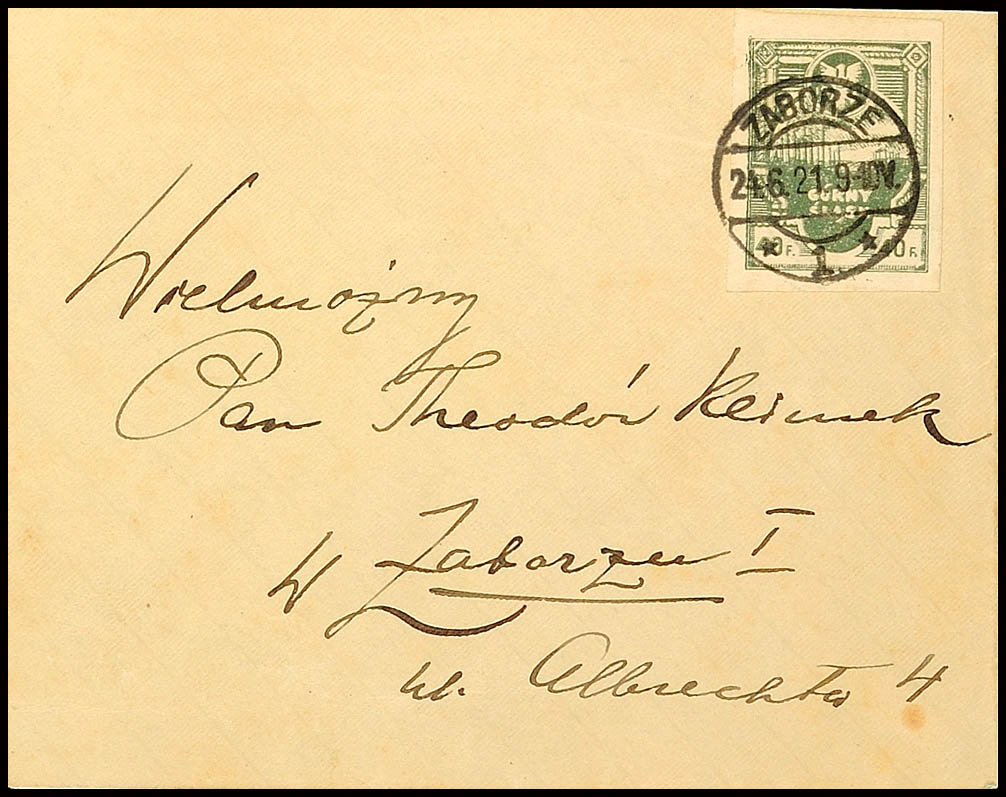 ZABORZE
21.6.21.9-10V.
GÓRNY
ŚLĄSK
40 F. 40 F.
1
Wielmożny
Pan Theodór Klimek
w Zaborzu I
ul. Albrechta 4